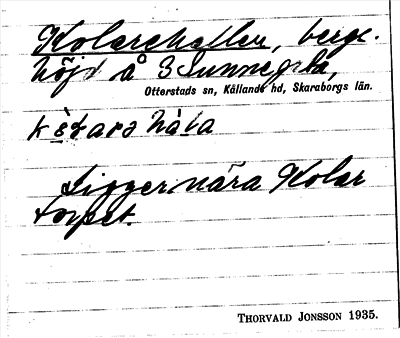 Kolarehallen, bergs-
höjd å 3 Sunnegrla,
Otterstads sn, Kållands hd, Skaraborgs län.
Ligger nära Kolar
torpet.
THORVALD JONSSON 1935.